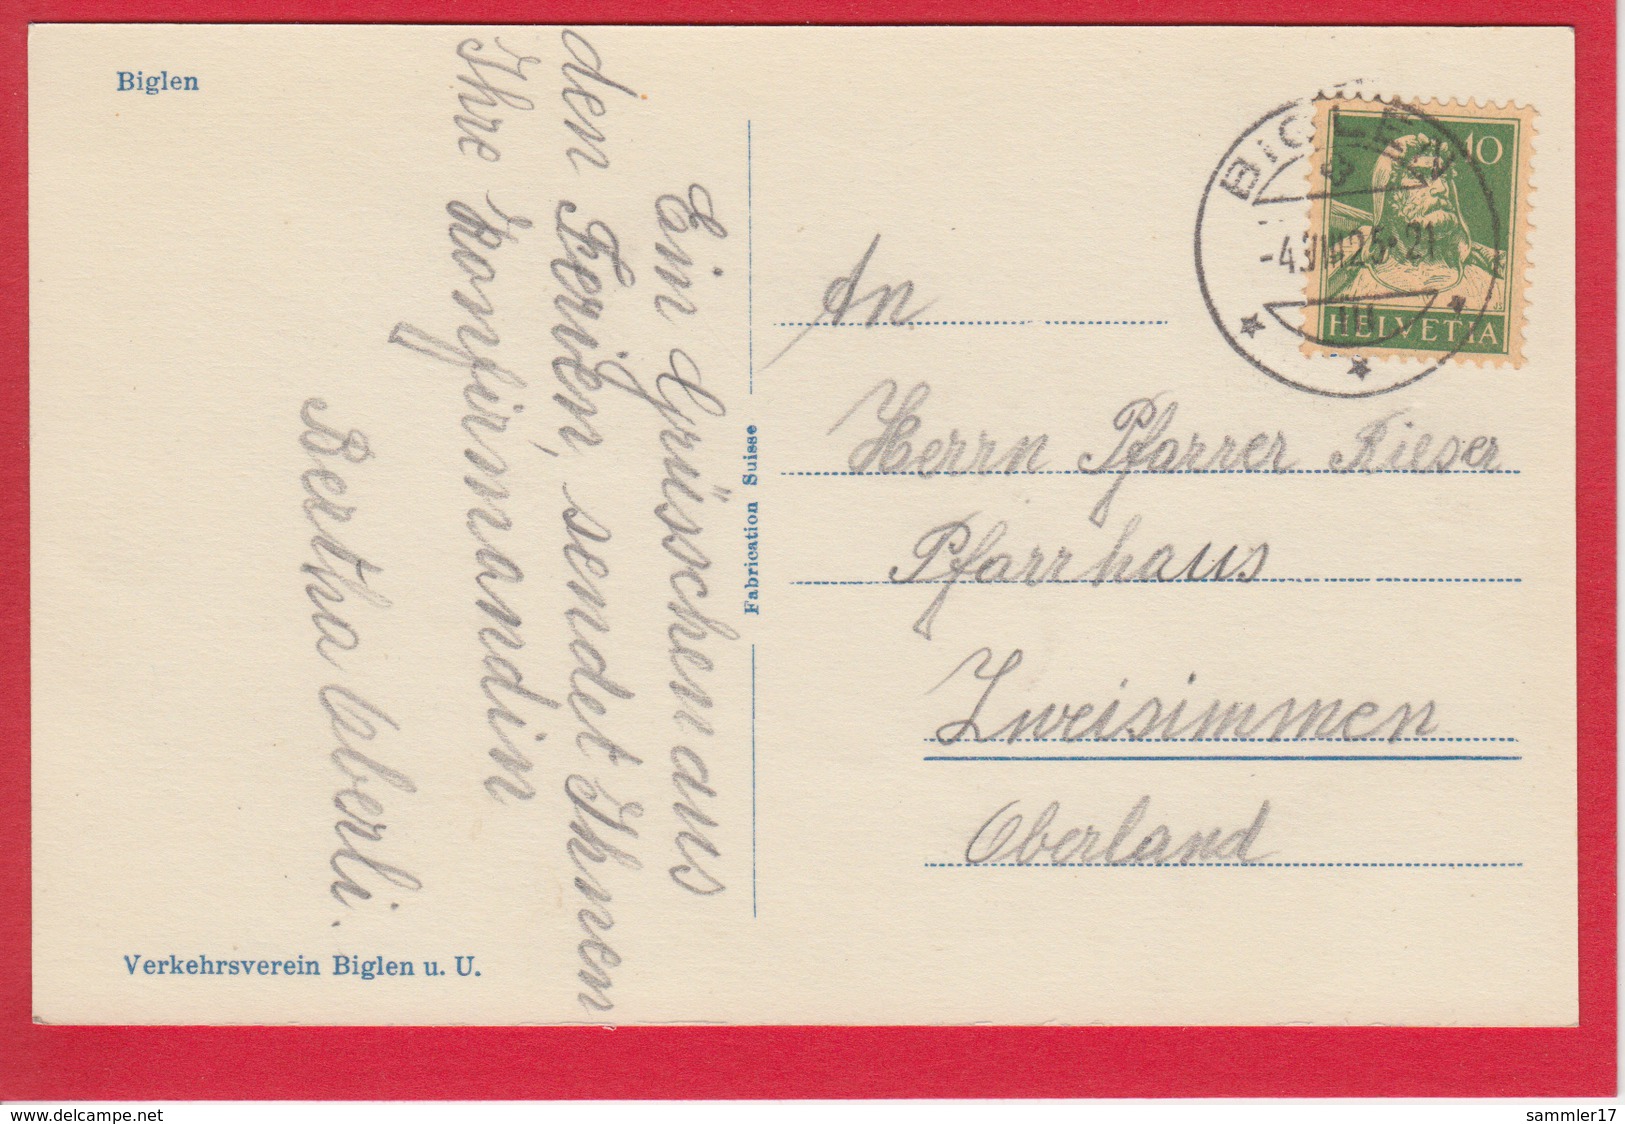 Biglen
Ein Grüsschen aus
den Ferien, sendet Ihnen
Ihre Konfirmandin
Bertha Aberli.
Verkehrsverein Biglen u. U.
Fabrication Suisse
BIGLEN
10
HELVETIA
An
Herrn Pfarrer Rieser
Pfarrhaus
Zweisimmen
Oberland
www.delcampe.net
sammler17